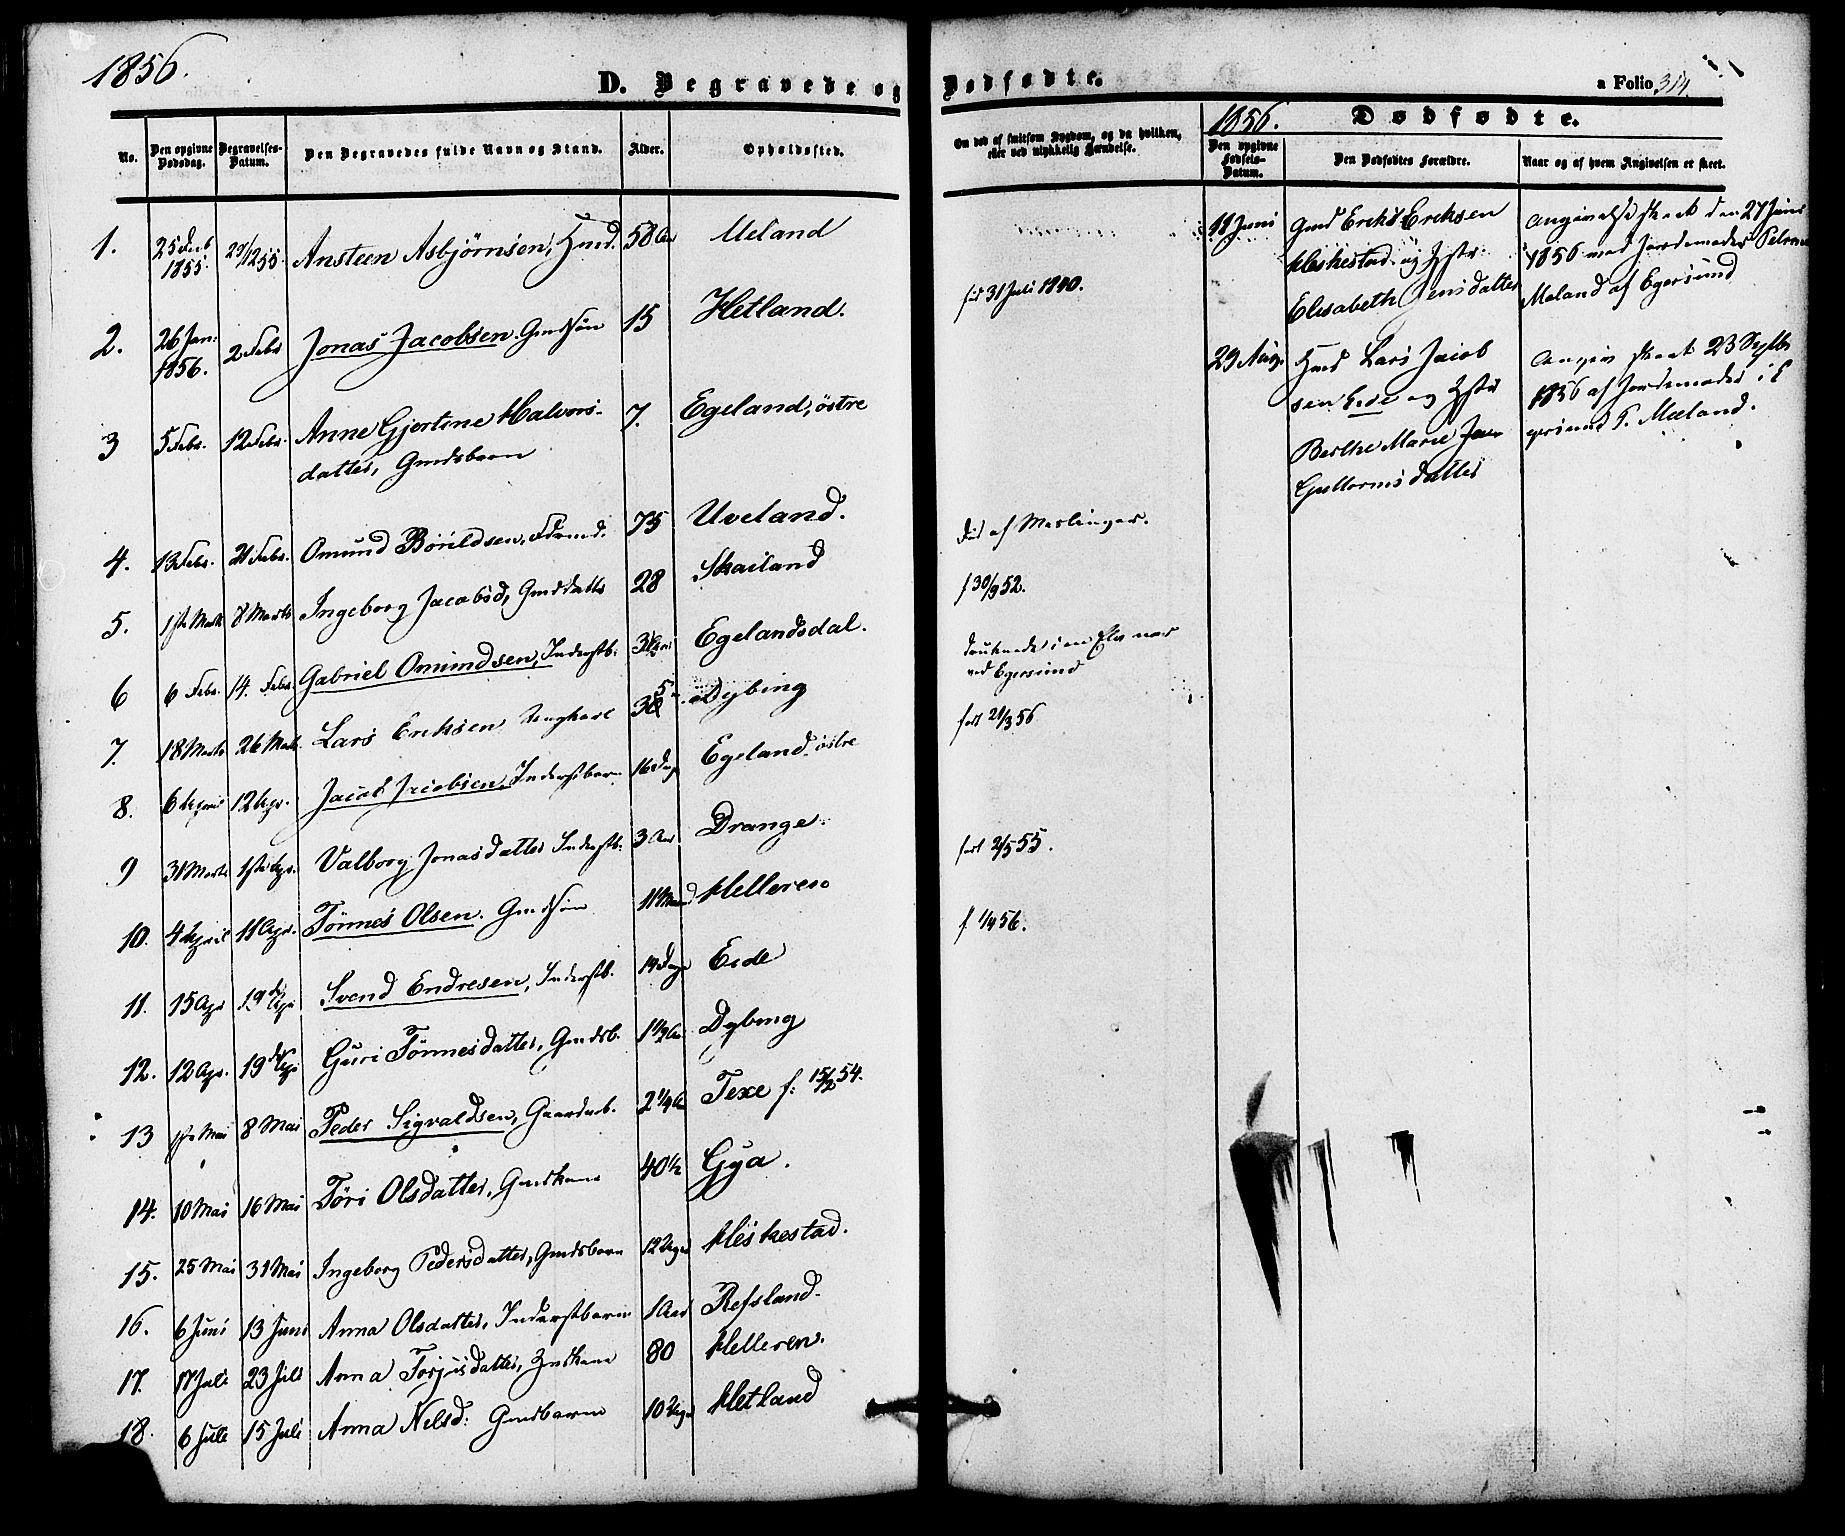 1856.
D. Begravede og Dødfødte.
a Folio 314.
No. Den opgivne Dødsdag. Begravelses-Datum. Den Begravedes fulde Navn og Stand. Alder. Opholdssted.
Om død af smitsom Sygdom, og da hvilken, eller ved ulykkelig Hændelse.
1856. Dødfødte.
Den opgivne Fødsels-Datum. Den Dødfødtes Forældre. Naar og af hvem Angivelsen er skeet.
1. 1855. Ansteen Asbjörnsen, 58 Meland
2. 26 Jan: 1856. 2 Febr Jonas Jacobsen. Gmdsön 15 Hetland.
31 Juli 1840.
3 5 Febr. 12 Febr. Anne Gjertine Halvors-
datter, Gmdsbarn 7. Egeland, östre
4. 13 Febr. 21 Febr. Omund Börildsen, 75 Uveland.
5. 1ste Marts 8 Marts Ingeborg Jacobsd, Gmdsdatter 28 Skailand
Död af Meslinger.
6 6 Febr. 14. Febr. Gabriel Omundsen, Inderstb. Egelandsdal.
f 30/9 52.
7. 18 Marts 26 Marts Lars Eriksen Ungkarl Dybing
druknede i en Elv nær
ved Egersund
8. 6 April 12 Apr. Jacob Jacobsen, Inderstbarn 16 Dage Egeland östre
født 21/3 56
9 31 Marts 1ste Apr. Valborg Jonasdatter Inderstb. 3 Aar Drange.
10. 4 April 11 Apr. Tönnes Olsen. Gmdsön 11 Maaned Helleren
født 2/5 55.
11. 15 Apr 19 Apr Svend Endresen, Inderstb. 14 Dage Eide
f. 1/4 56.
12. 12 Apr. 19 Apr Guri Tönnesdatter, Gmdsb. 1 1/2 Aar Dybing
13 1ste Mai 8 Mai Peder Sigvaldsen, Gaardmb. 2 1/4 A Texe f: 54.
14. 10 Mai 16 Mai Töri Olsdatter, Gmdskone 40 1/2 Gya.
15. 25 Mai 31 Mai Ingeborg Pedersdatter, Gmdsbarn 12 Uger Heskestad.
16. 6 Juni 13 Juni Anna Olsdatter, Inderstbarn 1 Aar Refsland.
17. 17 Juli 23 Juli Anna Torjusdatter, 80 Helleren.
18. 6 Juli 15 Juli Anna Nelsd: Gmdbarn 10 Uger Hetland
18 Juni Gmd Erik Eriksen
Heskestad og Hstr
Elisabeth Jensdatter
Angivelse skeet den 27 Juni
1856 ved Jordemoder
Meland af Egersund
29 Aug. Hmd Lars Jacob
sen Eide og Hstr
Berthe Marie
Guttormsdatter
Angiv skeet 23 Septbr
1856 af Jordemoder i E
gersund P. Mæland.